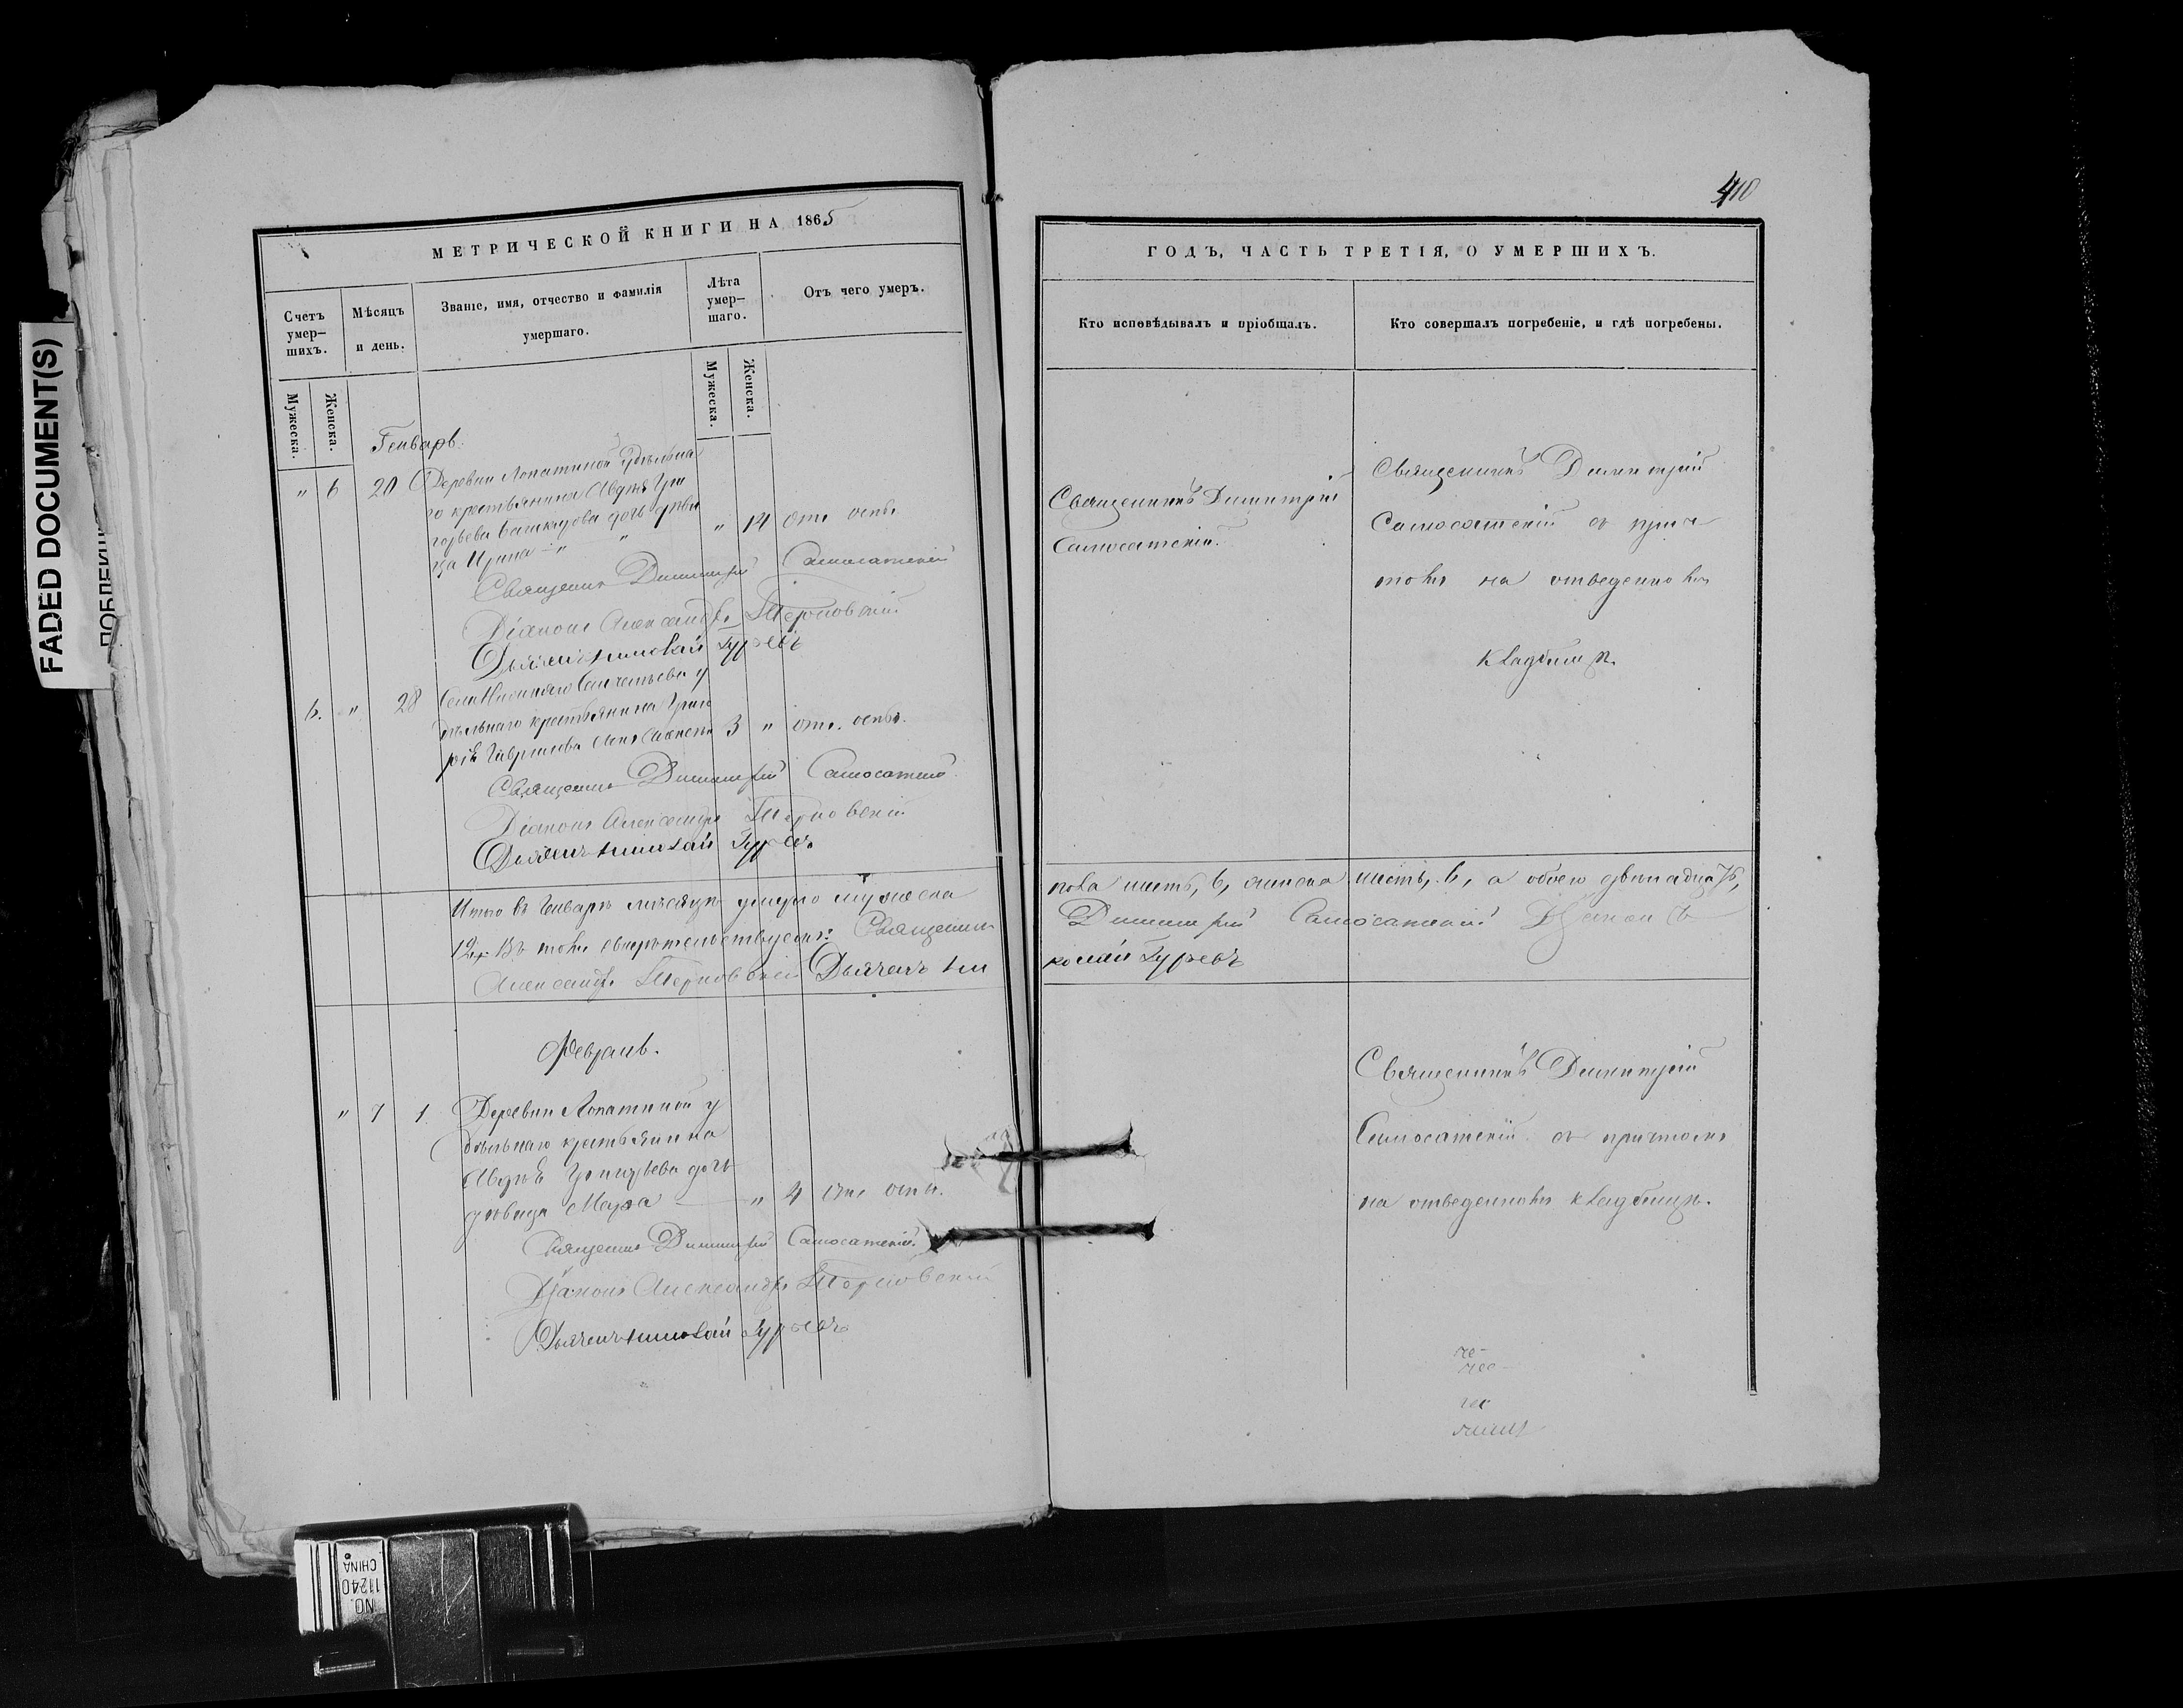 FADED DOCUMENT(S)
МЕТРИЧЕСКОЙ КНИГИ НА 1865
Счетъ умер-
шихъ.
Мѣсяцъ
и день.
Званіе, имя, отчество и фамилія
умершаго.
Лѣта
умер-
шаго.
Отъ чего умеръ.
Мужеска.
Женска.
Мужеска.
Женска.
Генварь.
" 6 20 Деревни Лопатиной удѣльна
го крестьянина Авдѣя Гри
горьева дочь дѣви " 14 отъ оспы.
ца Ирина "
Священникъ Димитрій Самосатскій
Діаконъ Александръ Терновскій
Дьячекъ Николай Гурьевъ
6. " 28 Села у
дѣльнаго крестьянина Григо
рія Гаврилова сынъ 3 " отъ оспы.
Священникъ Димитрій Самосатскій
Діаконъ Александръ Терновскій
Дьячекъ Николай Гурьевъ
Итого въ Генварѣ мѣсяцѣ умерло мужеска
12. Въ томъ свидѣтельствуемъ: Священникъ
Александръ Терновскій Дьячекъ Ни
Февраль.
" 7 1. Деревни Лопатиной у
дѣльнаго крестьянина
Авдѣя Григорьева дочь
дѣвица " 4 отъ оспы.
Священникъ Димитрій Самосатскій
Діаконъ Александръ Терновскій
Дьячекъ Николай Гурьевъ
410
ГОДЪ, ЧАСТЬ ТРЕТІЯ, О УМЕРШИХЪ.
Кто исповѣдывалъ и пріобщалъ.
Кто совершалъ погребеніе, и гдѣ погребены.
Священникъ Димитрій
Самосатскій.
Священникъ Димитрій
Самосатскій съ прич
томъ на отведенномъ
кладбищѣ.
пола шесть, 6, женска шесть, 6, а обоего двенадцать,
Димитрій Самосатскій Діаконъ
колай Гурьевъ
Священникъ Димитрій
Самосатскій съ причтомъ
на отведенномъ кладбищѣ.
NO.
11240
CHINA